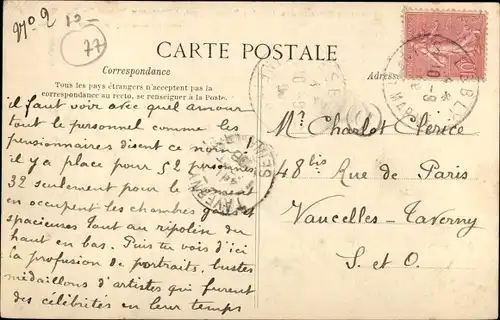 No 2
77
CARTE POSTALE
Correspondance
Adresse
Tous les pays étrangers n'acceptent pas la
correspondance au recto, se renseigner à la Poste.
il faut voir avec quel amour
tout le personnel comme les
pensionnaires disent ce nom!
il y a place pour 52 personnes
32 seulement pour le moment
en occupent les chambres
spacieuses tout au ripolin du
haut en bas. Puis tu vois d'ici
la profusion de portraits, bustes
médaillons d'artistes qui furent
des célébrités en leur temps
Mr Charlot Clérice
48 bis Rue de Paris
Vaucelles-Taverny
S. et O.
TAVERNY